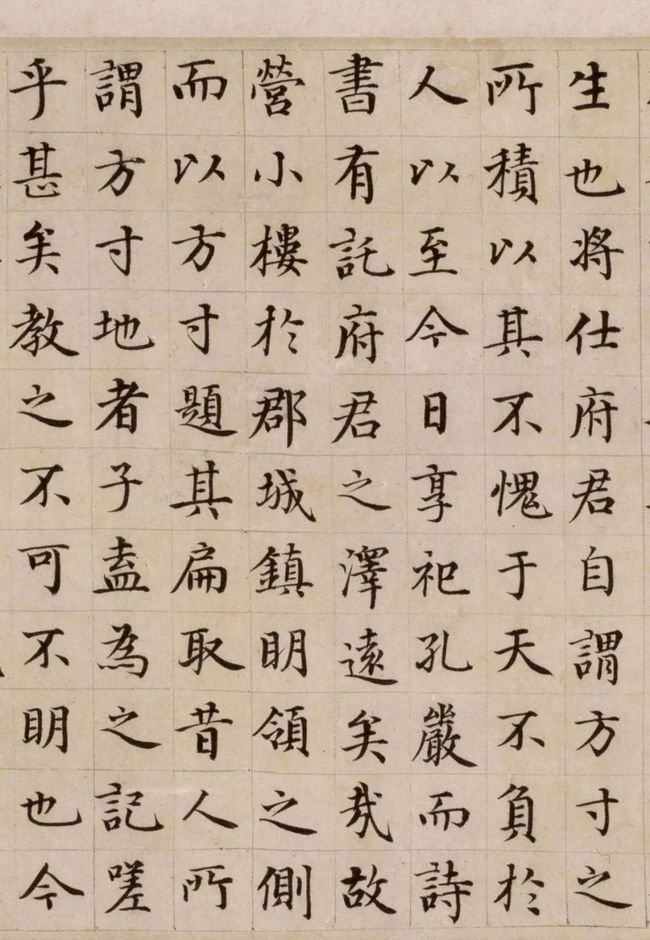 生也将仕府君自謂方寸之
所積以其不愧于天不負於
人以至今日享祀孔嚴而詩
書有託府君之澤遠矣哉故
營小樓於郡城鎮明領之側
而以方寸題其扁取昔人所
謂方寸地者子盍為之記嗟
乎甚矣教之不可不明也今